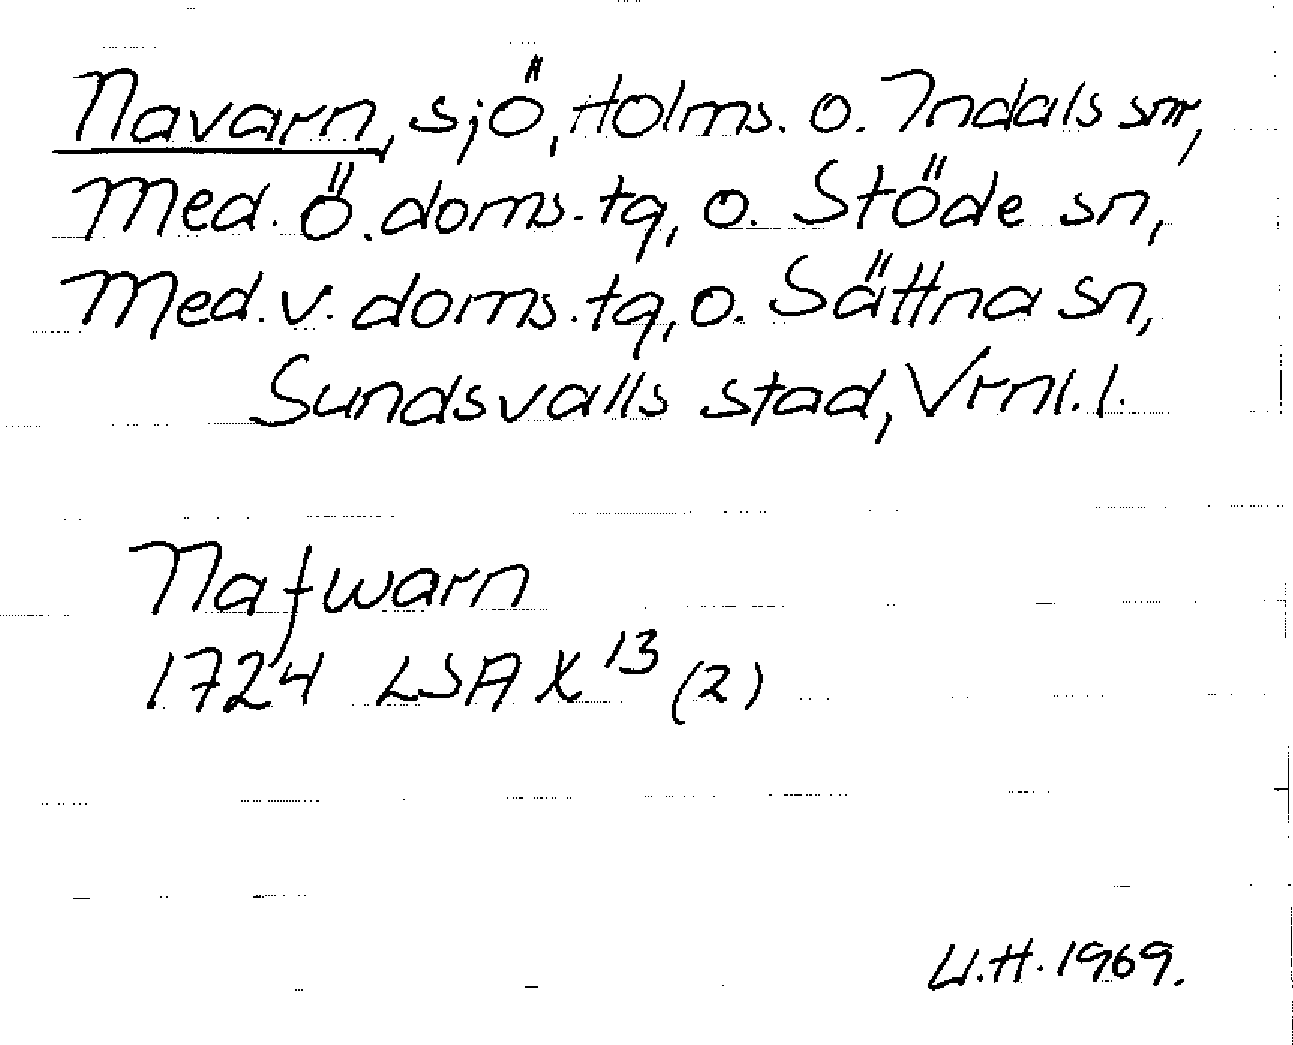 Navarn, sjö, Holms. o. Indals snr,
Med. Ö. doms. tg, o. Stöde sn,
Med. v. doms. tg, o. Sättna sn,
Sundsvalls stad, Vrnl. l.
Nafwarn
1724 LSA X 13 (2)
U.H. 1969.